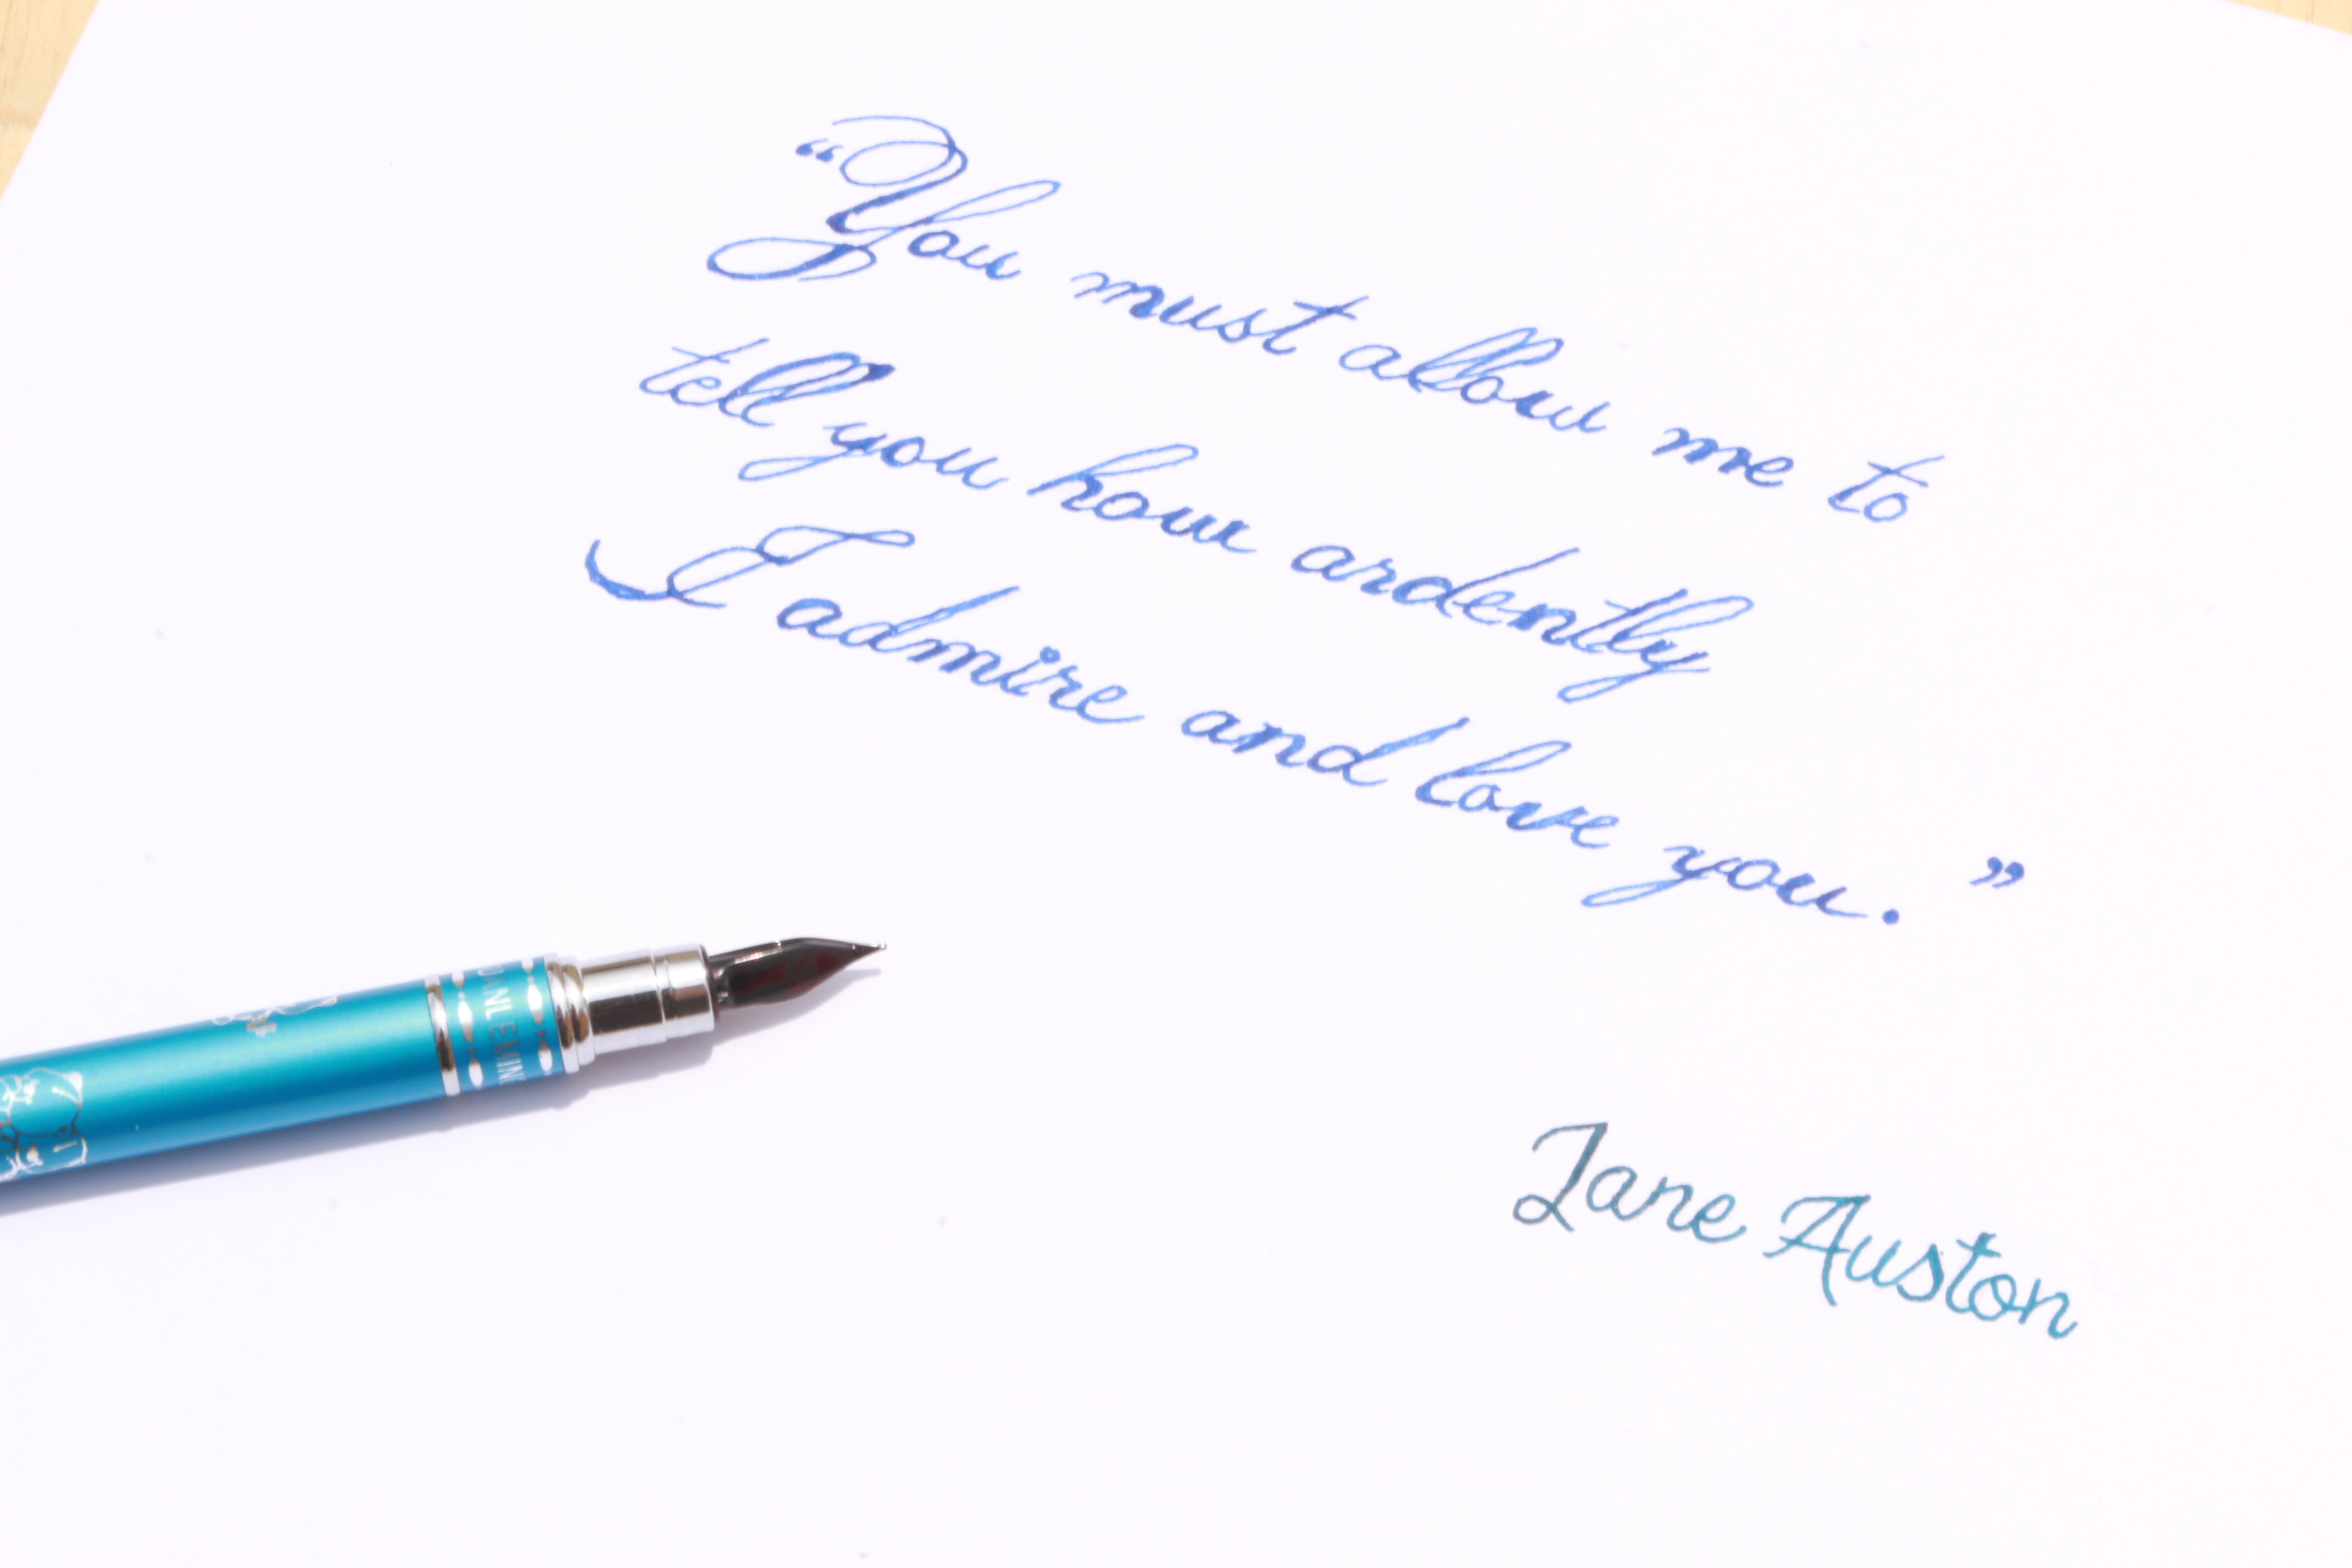 “You must allow me to
tell you how ardently
I admire and love you.”
Jane Auston